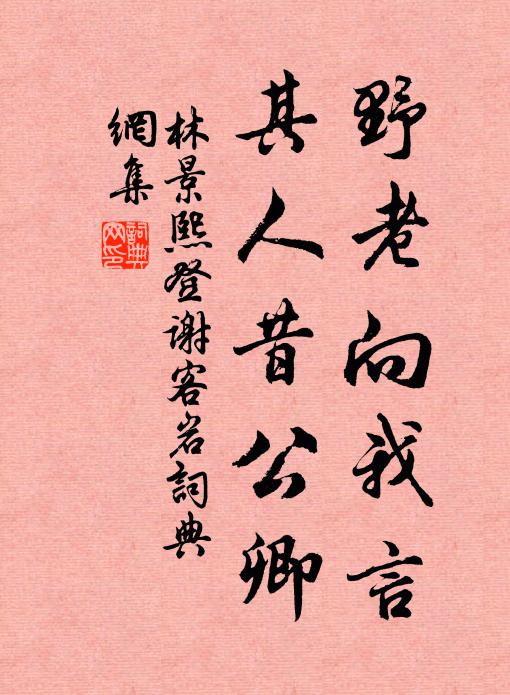 野老向我言
其人昔公卿
林景熙登谢客岩詞典
網集
詞典网印